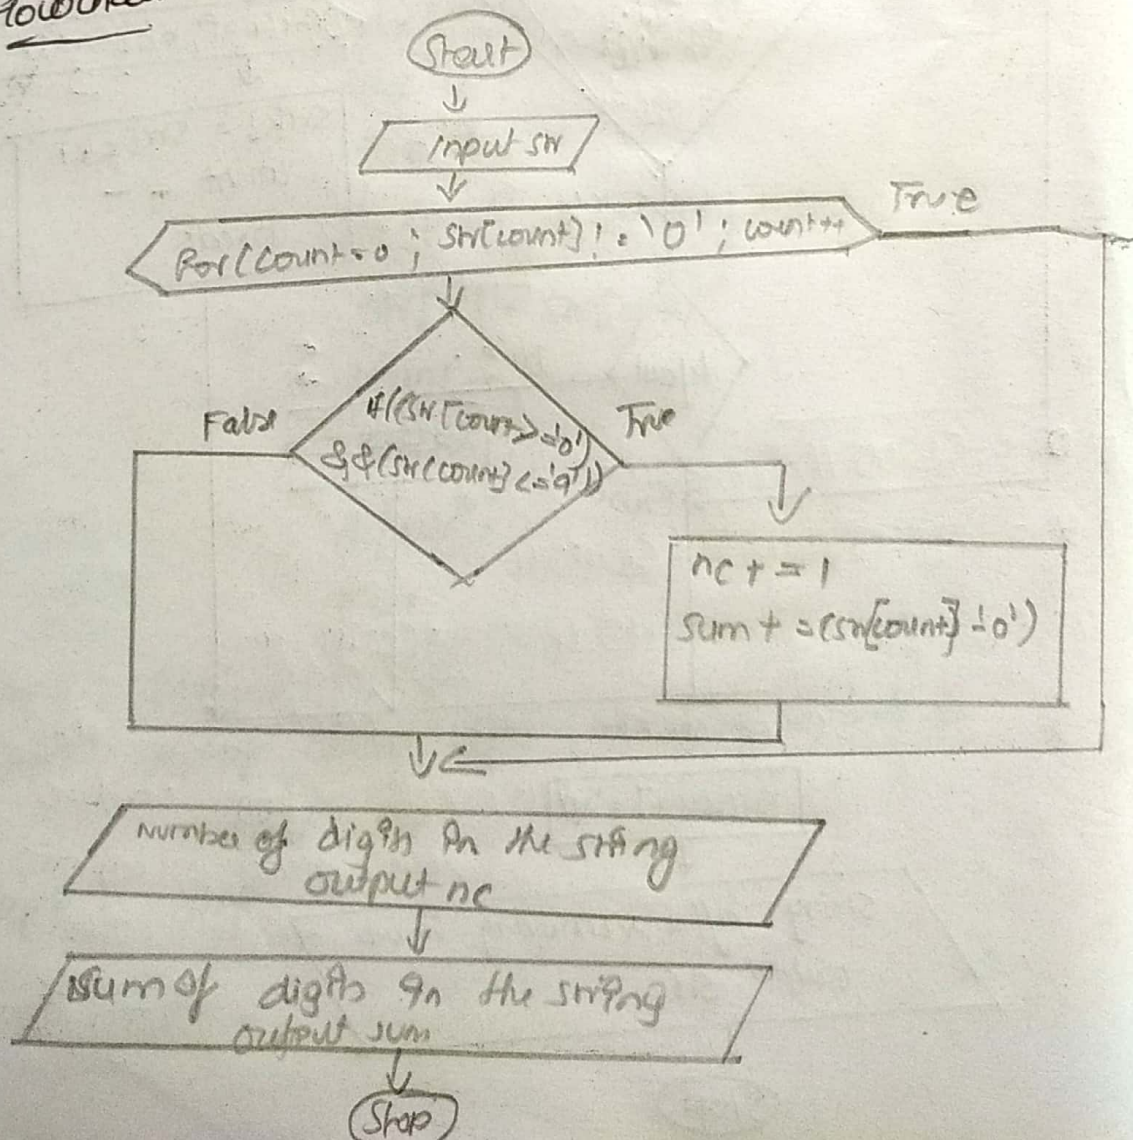 Start
Input str
For(Count=0 ; Str[count] != '\0' ; count++
True
if((str[count>='0')
&&(str[count]<='9'))
False
True
nc + = 1
sum + =(str[count]-'0')
Number of digits in the string
output nc
Sum of digits in the string
output sum
Stop